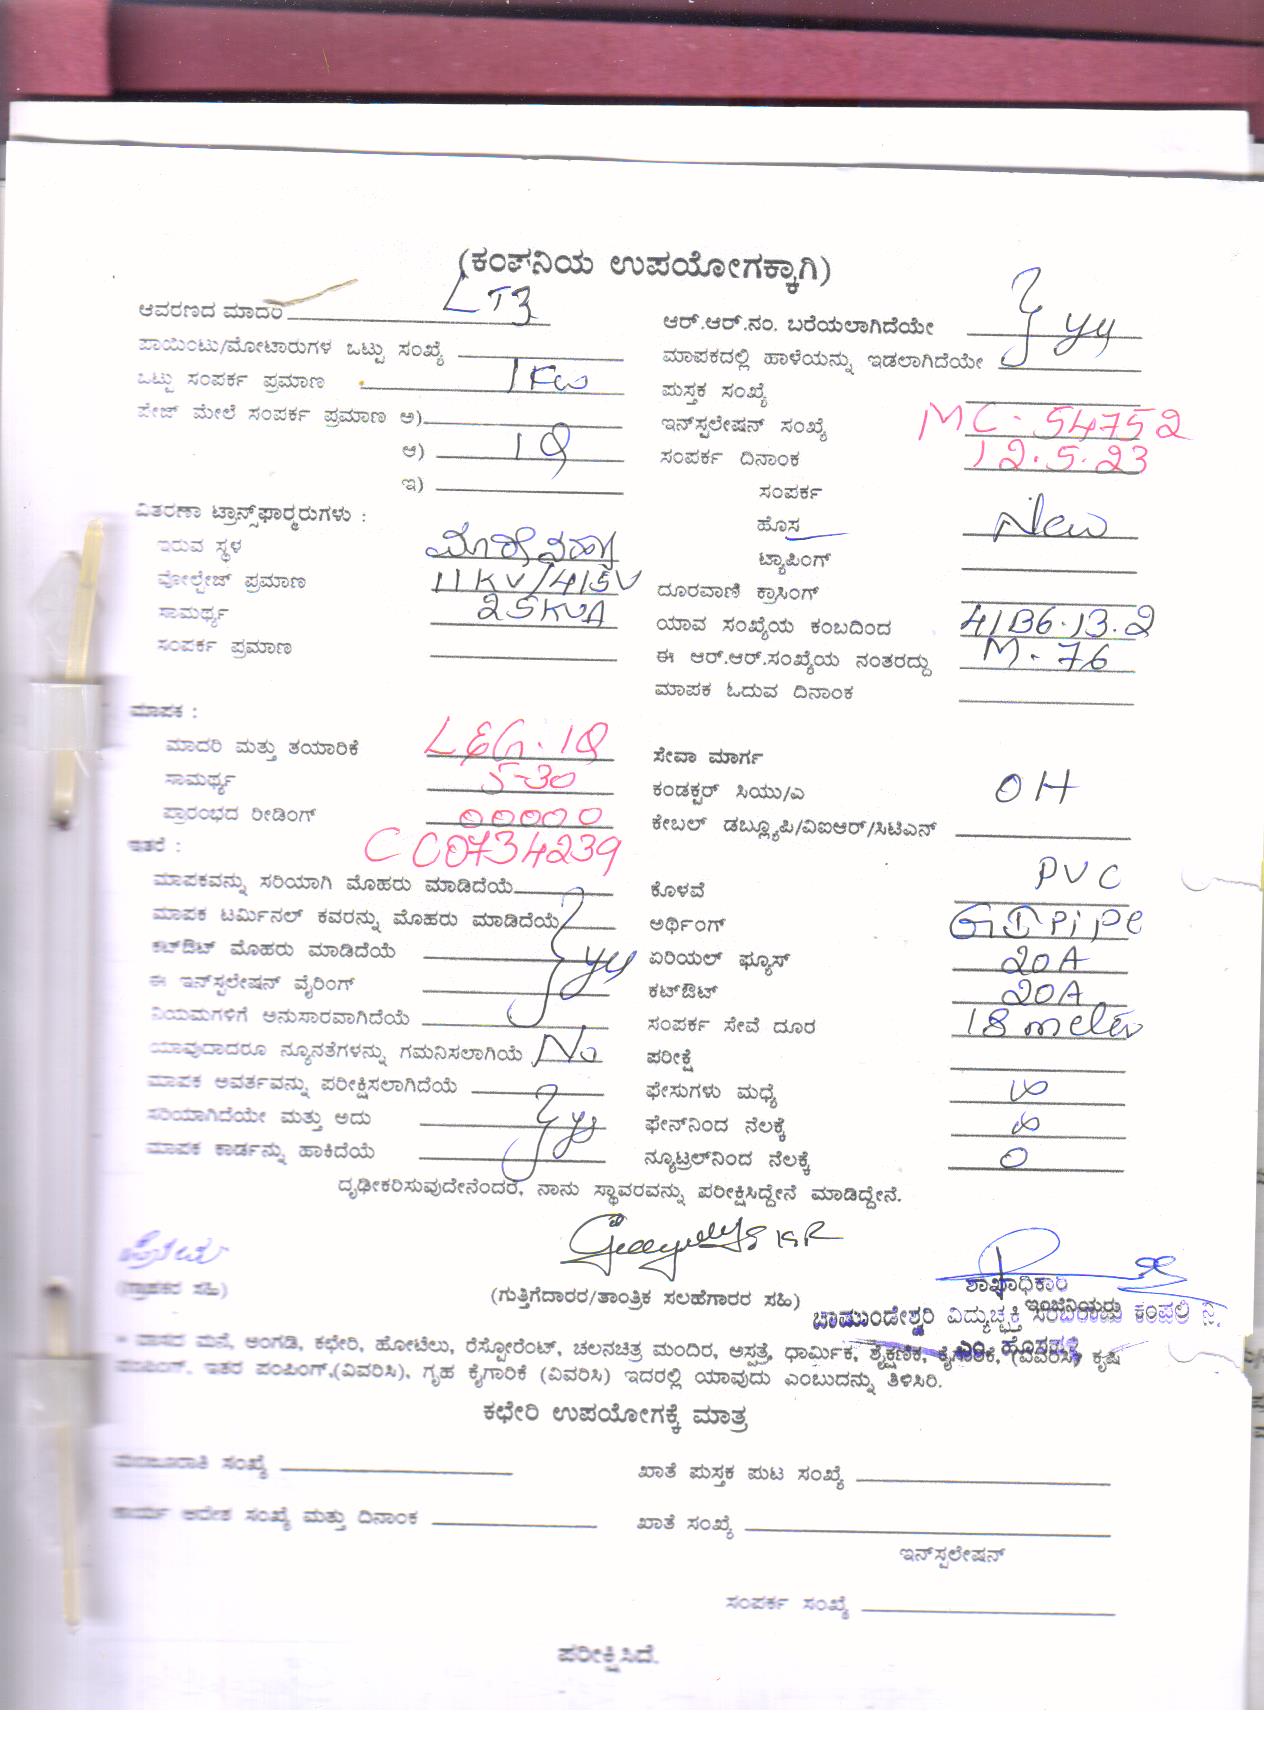 (ಕಂಪನಿಯ ಉಪಯೋಗಕ್ಕಾಗಿ)
ಆವರಣದ ಮಾದರಿ LT3
ಪಾಯಿಂಟು/ಮೋಟಾರುಗಳ ಒಟ್ಟು ಸಂಖ್ಯೆ
ಒಟ್ಟು ಸಂಪರ್ಕ ಪ್ರಮಾಣ 1 Kw
ಪೇಜ್ ಮೇಲೆ ಸಂಪರ್ಕ ಪ್ರಮಾಣ ಅ)
ಆ) 1
ಇ)
ವಿತರಣಾ ಟ್ರಾನ್ಸ್‌ಫಾರ್ಮರುಗಳು :
ಇರುವ ಸ್ಥಳ
ವೋಲ್ಟೇಜ್ ಪ್ರಮಾಣ 11KV/415V
ಸಾಮರ್ಥ್ಯ 25KVA
ಸಂಪರ್ಕ ಪ್ರಮಾಣ
ಮಾಪಕ :
ಮಾದರಿ ಮತ್ತು ತಯಾರಿಕೆ L&G. 1
ಸಾಮರ್ಥ್ಯ 5-30
ಪ್ರಾರಂಭದ ರೀಡಿಂಗ್ 00000
ಇತರೆ : CC0734239
ಮಾಪಕವನ್ನು ಸರಿಯಾಗಿ ಮೊಹರು ಮಾಡಿದೆಯೆ
ಮಾಪಕ ಟರ್ಮಿನಲ್ ಕವರನ್ನು ಮೊಹರು ಮಾಡಿದೆಯೆ
ಕಟ್‌ಔಟ್ ಮೊಹರು ಮಾಡಿದೆಯೆ
ಈ ಇನ್‌ಸ್ಟಲೇಷನ್ ವೈರಿಂಗ್
ನಿಯಮಗಳಿಗೆ ಅನುಸಾರವಾಗಿದೆಯೆ
ಯಾವುದಾದರೂ ನ್ಯೂನತೆಗಳನ್ನು ಗಮನಿಸಲಾಗಿಯೆ No
ಮಾಪಕ ಅವರ್ತವನ್ನು ಪರೀಕ್ಷಿಸಲಾಗಿದೆಯೆ
ಸರಿಯಾಗಿದೆಯೇ ಮತ್ತು ಅದು
ಮಾಪಕ ಕಾರ್ಡನ್ನು ಹಾಕಿದೆಯೆ
ಆರ್.ಆರ್.ನಂ. ಬರೆಯಲಾಗಿದೆಯೇ
ಮಾಪಕದಲ್ಲಿ ಹಾಳೆಯನ್ನು ಇಡಲಾಗಿದೆಯೇ
ಪುಸ್ತಕ ಸಂಖ್ಯೆ
ಇನ್‌ಸ್ಟಲೇಷನ್ ಸಂಖ್ಯೆ MC. 54752
ಸಂಪರ್ಕ ದಿನಾಂಕ 12.5.23
ಸಂಪರ್ಕ
ಹೊಸ New
ಟ್ಯಾಪಿಂಗ್
ದೂರವಾಣಿ ಕ್ರಾಸಿಂಗ್
ಯಾವ ಸಂಖ್ಯೆಯ ಕಂಬದಿಂದ 41B6.13.2
ಈ ಆರ್.ಆರ್.ಸಂಖ್ಯೆಯ ನಂತರದ್ದು M-76
ಮಾಪಕ ಓದುವ ದಿನಾಂಕ
ಸೇವಾ ಮಾರ್ಗ
ಕಂಡಕ್ಟರ್ ಸಿಯು/ಎ OH
ಕೇಬಲ್ ಡಬ್ಲ್ಯೂಪಿ/ವಿಐಆರ್/ಸಿಟಿಎನ್
ಕೊಳವೆ PVC
ಅರ್ಥಿಂಗ್ GI Pipe
ಏರಿಯಲ್ ಫ್ಯೂಸ್ 20A
ಕಟ್‌ಔಟ್ 20A
ಸಂಪರ್ಕ ಸೇವೆ ದೂರ 18 meter
ಪರೀಕ್ಷೆ
ಫೇಸುಗಳು ಮಧ್ಯೆ ∞
ಫೇಸ್‌ನಿಂದ ನೆಲಕ್ಕೆ ∞
ನ್ಯೂಟ್ರಲ್‌ನಿಂದ ನೆಲಕ್ಕೆ 0
ದೃಢೀಕರಿಸುವುದೇನೆಂದರೆ, ನಾನು ಸ್ಥಾವರವನ್ನು ಪರೀಕ್ಷಿಸಿದ್ದೇನೆ ಮಾಡಿದ್ದೇನೆ.
(ಗ್ರಾಹಕರ ಸಹಿ)
(ಗುತ್ತಿಗೆದಾರರ/ತಾಂತ್ರಿಕ ಸಲಹೆಗಾರರ ಸಹಿ)
ಶಾಖಾಧಿಕಾರಿ
ಇಂಜಿನಿಯರು
ಚಾಮುಂಡೇಶ್ವರಿ ವಿದ್ಯುಚ್ಛಕ್ತಿ ಸರಬರಾಜು ಕಂಪನಿ ನಿ.
* ವಾಸದ ಮನೆ, ಅಂಗಡಿ, ಕಛೇರಿ, ಹೋಟೆಲು, ರೆಸ್ಟೋರೆಂಟ್, ಚಲನಚಿತ್ರ ಮಂದಿರ, ಅಸ್ಪತ್ರೆ, ಧಾರ್ಮಿಕ, ಶೈಕ್ಷಣಿಕ, ಕೈಗಾರಿಕೆ, (ವಿವರಿಸಿ) ಕೃಷಿ
ಪಂಪಿಂಗ್, ಇತರ ಪಂಪಿಂಗ್,(ವಿವರಿಸಿ), ಗೃಹ ಕೈಗಾರಿಕೆ (ವಿವರಿಸಿ) ಇದರಲ್ಲಿ ಯಾವುದು ಎಂಬುದನ್ನು ತಿಳಿಸಿರಿ.
ಕಛೇರಿ ಉಪಯೋಗಕ್ಕೆ ಮಾತ್ರ
ಮಂಜೂರಾತಿ ಸಂಖ್ಯೆ
ಖಾತೆ ಪುಸ್ತಕ ಪುಟ ಸಂಖ್ಯೆ
ಕಾರ್ಯ ಆದೇಶ ಸಂಖ್ಯೆ ಮತ್ತು ದಿನಾಂಕ
ಖಾತೆ ಸಂಖ್ಯೆ
ಇನ್‌ಸ್ಟಲೇಷನ್
ಸಂಪರ್ಕ ಸಂಖ್ಯೆ
ಪರೀಕ್ಷಿಸಿದೆ.